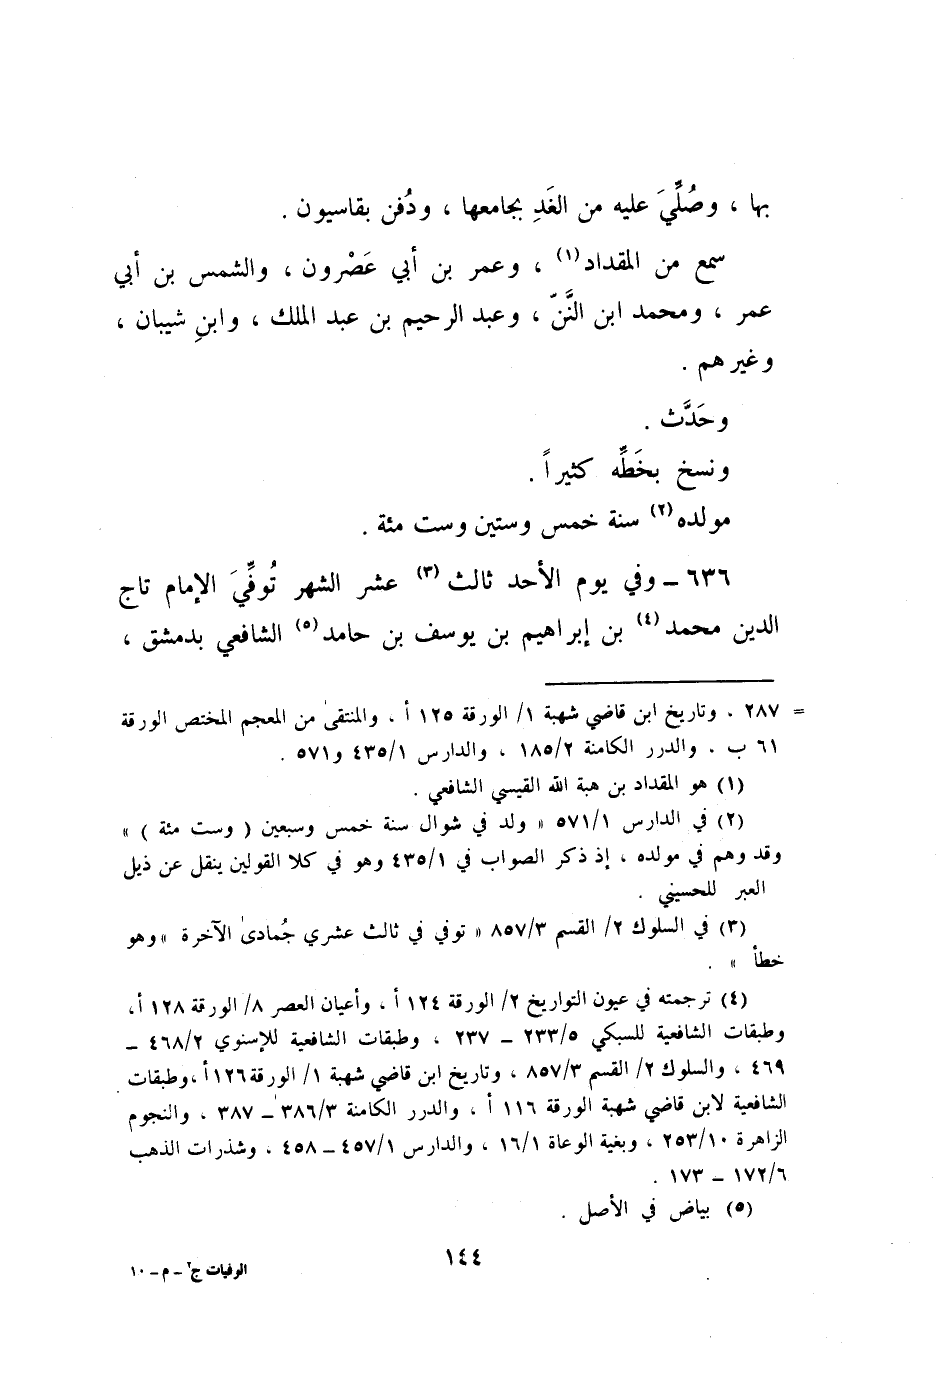 بها ، وصُلِّيَ عليه من الغَدِ بجامعها ، ودُفن بقاسيون .
سمع من المقداد(١) ، وعمر بن أبي عَصْرون ، والشمس بن أبي
عمر ، ومحمد ابن النَّنّ ، وعبد الرحيم بن عبد الملك ، وابنِ شيبان ،
وغيرهم .
وحَدَّث .
ونسخ بخَطِّه كثيراً .
مولده(٢) سنة خمس وستين وست مئة .
٦٣٦ – وفي يوم الأحد ثالث(٣) عشر الشهر تُوفِّيَ الإمام تاج
الدين محمد(٤) بن إبراهيم بن يوسف بن حامد(٥) الشافعي بدمشق ،
= ٢٨٧ . وتاريخ ابن قاضي شهبة ١/ الورقة ١٢٥ أ ، والمنتقىٰ من المعجم المختص الورقة
٦١ ب . والدرر الكامنة ١٨٥/٢ ، والدارس ٤٣٥/١ و٥٧١ .
(١) هو المقداد بن هبة الله القيسي الشافعي .
(٢) في الدارس ٥٧١/١ « ولد في شوال سنة خمس وسبعين ( وست مئة ) »
وقد وهم في مولده ، إذ ذكر الصواب في ٤٣٥/١ وهو في كلا القولين ينقل عن ذيل
العبر للحسيني .
(٣) في السلوك ٢/ القسم ٨٥٧/٣ « توفي في ثالث عشري جُمادىٰ الآخرة » وهو
خطأ » .
(٤) ترجمته في عيون التواريخ ٢/ الورقة ١٢٤ أ ، وأعيان العصر ٨/ الورقة ١٢٨ أ،
وطبقات الشافعية للسبكي ٢٣٣/٥ – ٢٣٧ ، وطبقات الشافعية للإسنوي ٤٦٨/٢ –
٤٦٩ ، والسلوك ٢/ القسم ٨٥٧/٣ ، وتاريخ ابن قاضي شهبة ١/ الورقة ١٢٦ أ ، وطبقات
الشافعية لابن قاضي شهبة الورقة ١١٦ أ ، والدرر الكامنة ٣٨٦/٣ – ٣٨٧ ، والنجوم
الزاهرة ٢٥٣/١٠ ، وبغية الوعاة ١٦/١ ، والدارس ٤٥٧/١ – ٤٥٨ ، وشذرات الذهب
١٧٢/٦ – ١٧٣ .
(٥) بياض في الأصل .
١٤٤
الوفيات ج٢ – م – ١٠